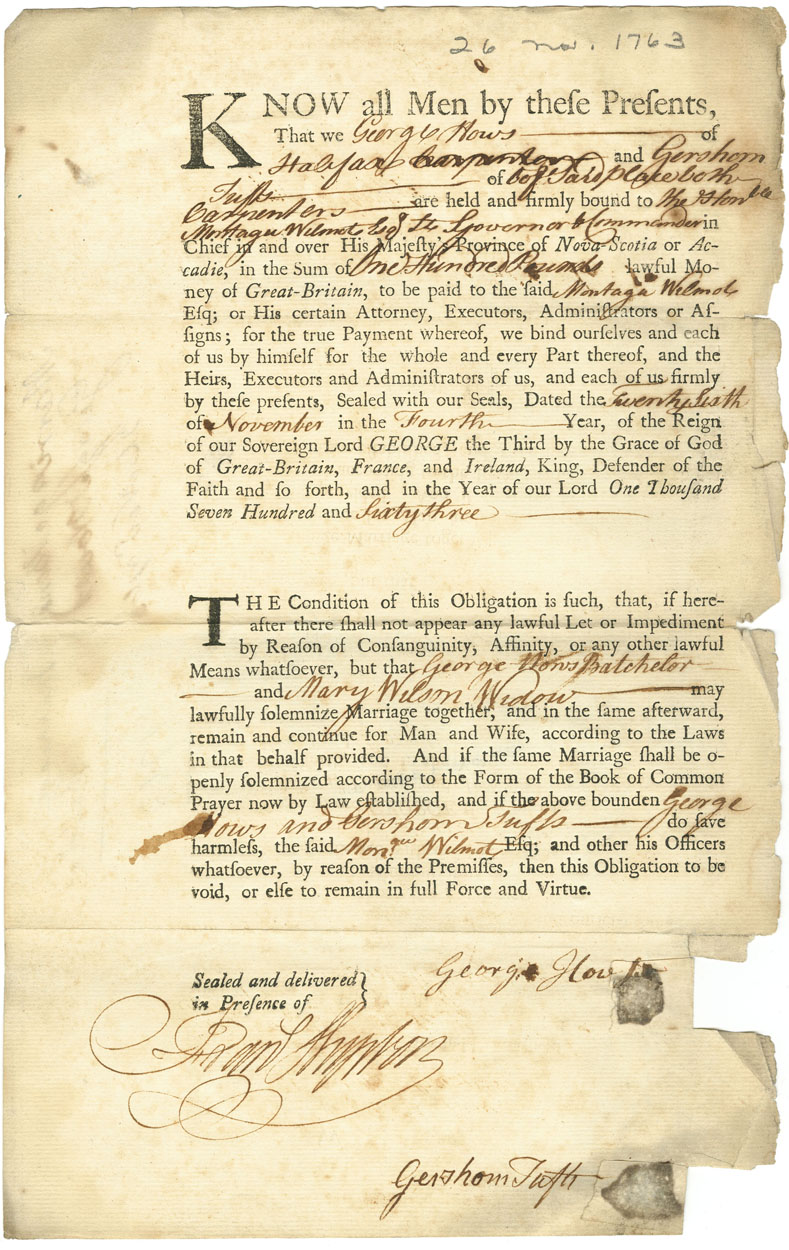 26 no. 1763
KNOW all Men by theſe Preſents,
That we George Hows of
Halifax Carpenter and Gershom
Tufts of of Said place both
Carpenters are held and firmly bound to The Honble
Montagu Wilmot Esqr Lt Governor & Commander in
Chief in and over His Majeſty's Province of Nova-Scotia or Ac-
cadie, in the Sum of One Hundred Pounds lawful Mo-
ney of Great-Britain, to be paid to the ſaid Montagu Wilmot
Eſq; or His certain Attorney, Executors, Adminiſtrators or Aſ-
ſigns; for the true Payment whereof, we bind ourſelves and each
of us by himſelf for the whole and every Part thereof, and the
Heirs, Executors and Adminiſtrators of us, and each of us firmly
by theſe preſents, Sealed with our Seals, Dated the Twenty Sixth
of November in the Fourth Year, of the Reign
of our Sovereign Lord GEORGE the Third by the Grace of God
of Great-Britain, France, and Ireland, King, Defender of the
Faith and ſo forth, and in the Year of our Lord One Thouſand
Seven Hundred and Sixty three
THE Condition of this Obligation is ſuch, that, if here-
after there ſhall not appear any lawful Let or Impediment
by Reaſon of Conſanguinity, Affinity, or any other lawful
Means whatſoever, but that George Hows Batchelor
and Mary Wilson Widow may
lawfully ſolemnize Marriage together, and in the ſame afterward,
remain and continue for Man and Wife, according to the Laws
in that behalf provided. And if the ſame Marriage ſhall be o-
penly ſolemnized according to the Form of the Book of Common
Prayer now by Law eſtabliſhed, and if the above bounden George
Hows and Gershom Tufts do ſave
harmleſs, the ſaid Wilmot Eſq; and other his Officers
whatſoever, by reaſon of the Premiſſes, then this Obligation to be
void, or elſe to remain in full Force and Virtue.
Sealed and delivered
in Preſence of
George Hows
Gershom Tufts